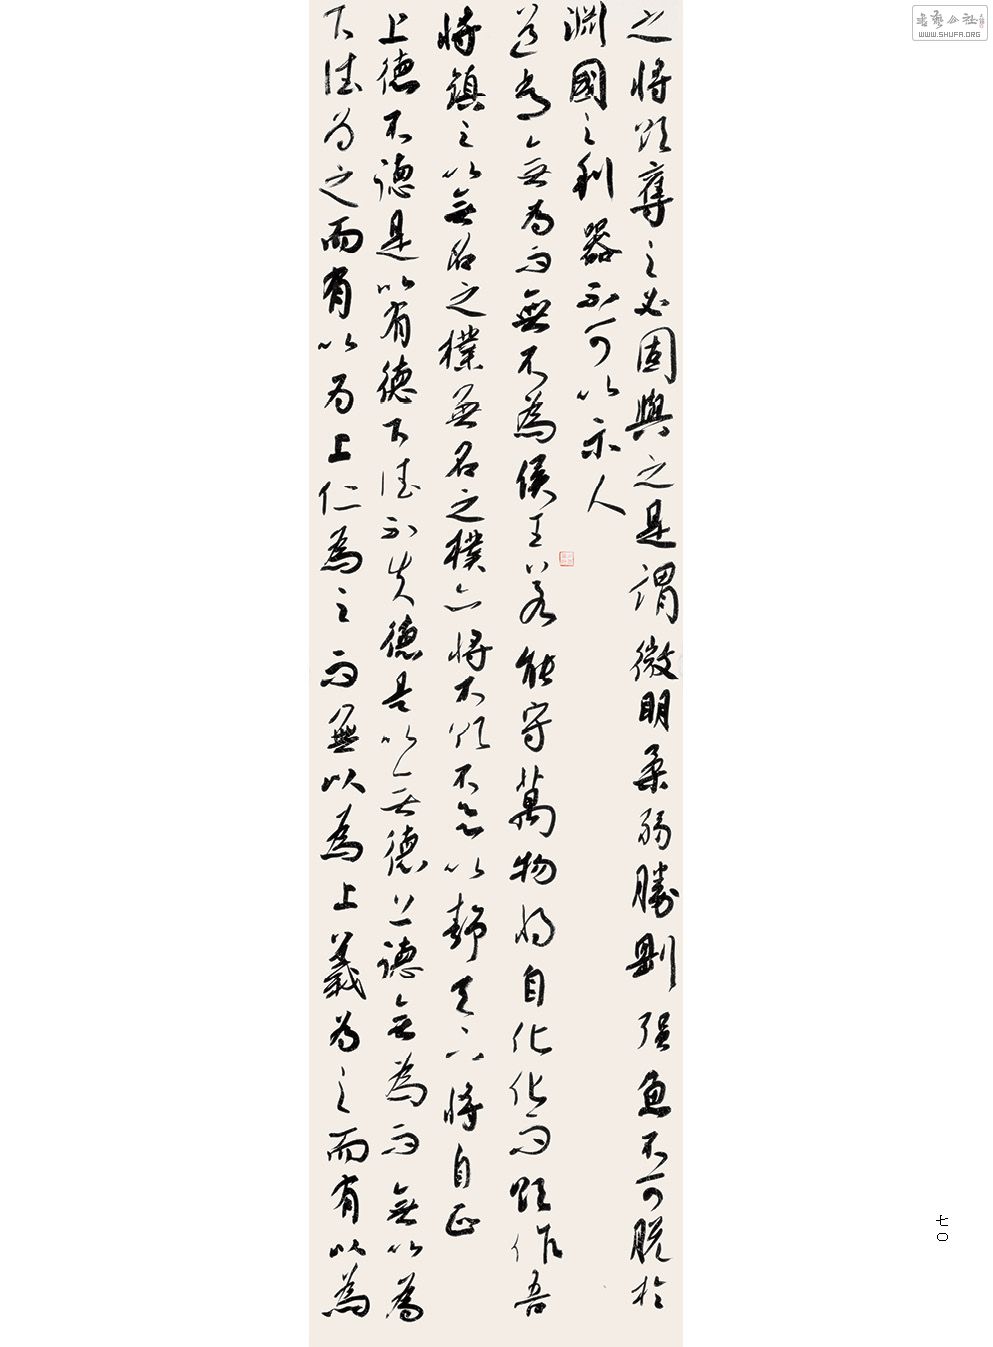 書藝公社
WWW.SHUFA.ORG
之將欲奪之必固與之是謂微明柔弱勝剛强魚不可脱於
淵國之利器不可以示人
道常無為而無不為侯王若能守萬物將自化化而欲作吾
將鎮之以無名之樸無名之樸亦將不欲不以靜天下將自正
上德不德是以有德下德不失德是以無德上德無為而無以為
下德為之而有以為上仁為之而無以為上義為之而有以為
七〇